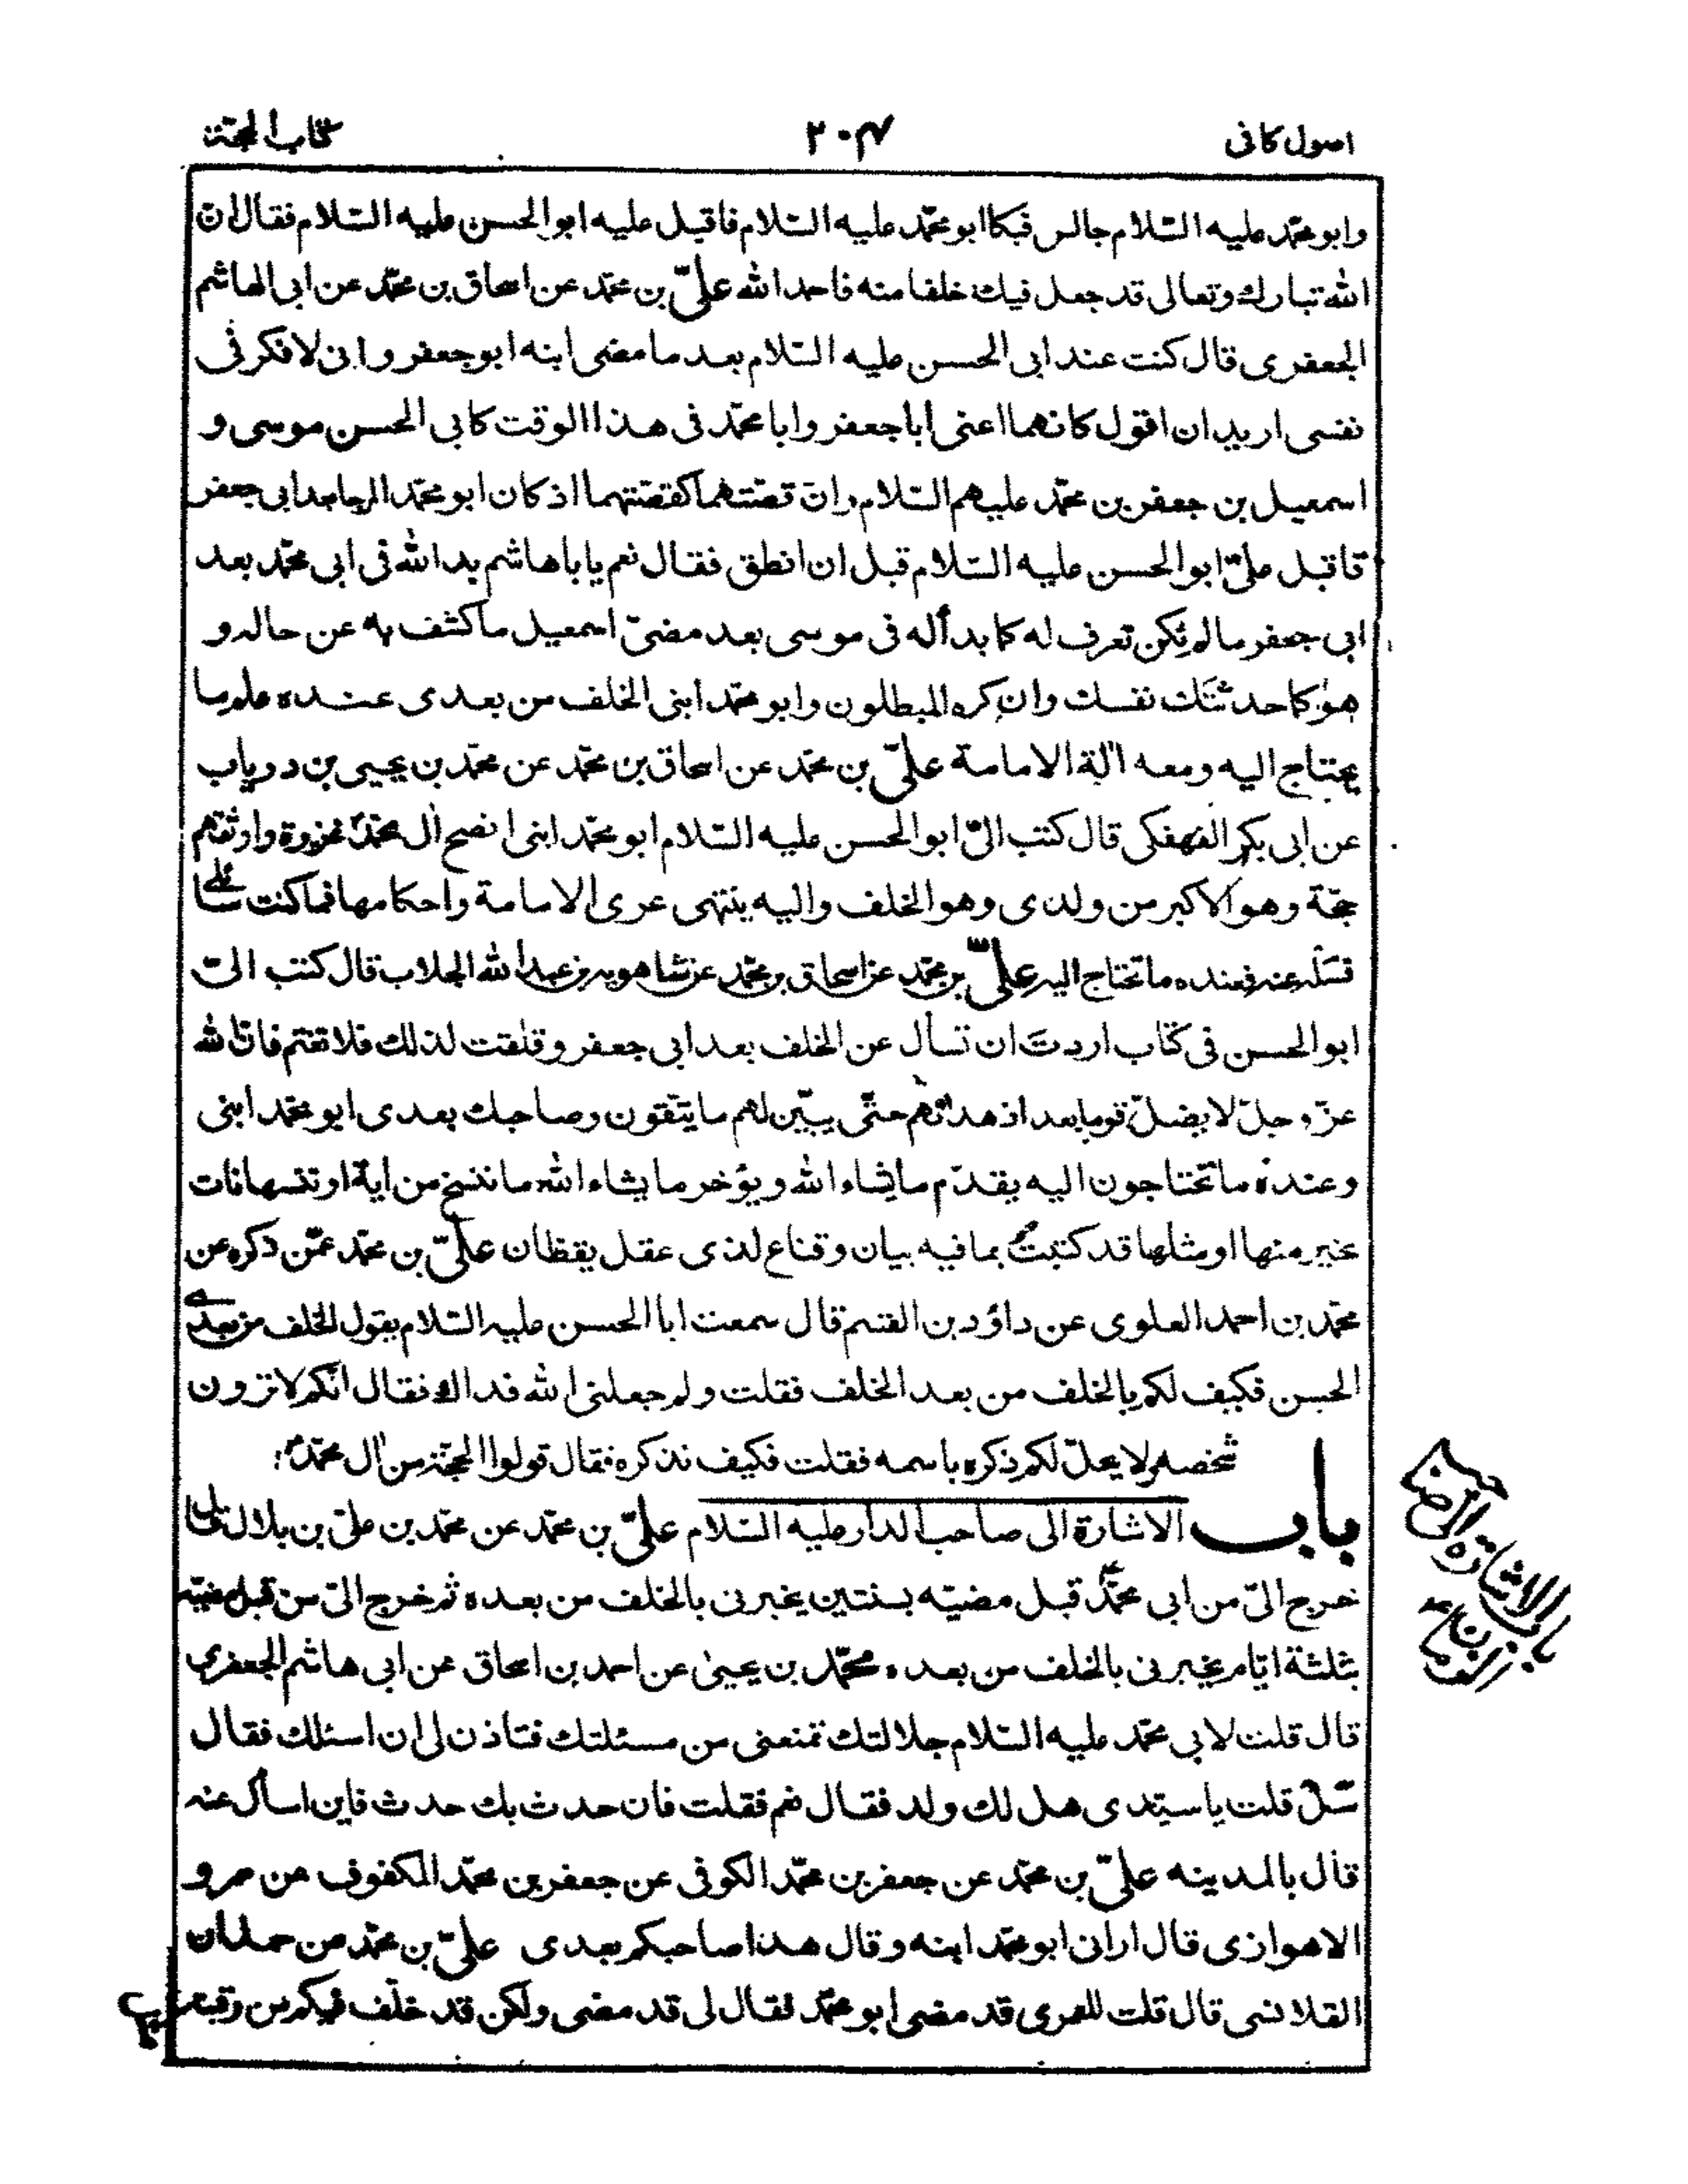 اصول كافى
٢٠٤
كتاب الحجة
وابو محمّد عليه السّلام جالس فبكا ابو محمّد عليه السّلام فاقبل عليه ابو الحسن عليه السّلام فقال ان
الله تبارك وتعالى قد جعل فيك خلفا منه فاحمد الله علىّ بن محمّد عن اسحاق بن محمّد عن ابى الهاشم
الجعفرى قال كنت عند ابى الحسن عليه السّلام بعد ما مضى ابنه ابو جعفر وانى لافكر فى
نفسى اريد ان اقول كانهما اعنى ابا جعفر وابا محمّد فى هذا الوقت كابى الحسن موسى و
اسمعيل بن جعفر بن محمّد عليهم السّلام وانّ قصّتهما كقصّتهما اذ كان ابو محمّد المرجا بعد ابى جعفر
فاقبل علىّ ابو الحسن عليه السّلام قبل ان انطق فقال نعم يا با هاشم بد الله فى ابى محمّد بعد
ابى جعفر ما لم يكن تعرف له كما بدأ له فى موسى بعد مضىّ اسمعيل ما كشف به عن حاله و
هو كما حدثتك نفسك وان كره المبطلون وابو محمّد ابنى الخلف من بعدى عنده علم ما
يحتاج اليه ومعه آلة الامامة علىّ بن محمّد عن اسحاق بن محمّد عن محمّد بن يحيى بن درياب
عن ابى بكر الفهفكى قال كتب الىّ ابو الحسن عليه السّلام ابو محمّد ابنى انصح آل محمّد غريزة واوثقهم
حجّة وهو الاكبر من ولدى وهو الخلف واليه ينتهى عرى الامامة واحكامها فما كنت سائلى
فسله عنه فعنده ما تحتاج اليه علىّ بن محمّد عن اسحاق بن محمّد عن شاهويه بن عبد الله الجلاب قال كتب الىّ
ابو الحسن فى كتاب اردت ان تسأل عن الخلف بعد ابى جعفر وقلقت لذلك فلا تغتم فانّ الله
عزّ وجلّ لا يضلّ قوما بعد اذ هداهم حتّى يبيّن لهم ما يتّقون وصاحبك بعدى ابو محمّد ابنى
وعنده ما تحتاجون اليه يقدّم ما يشاء الله ويؤخر ما يشاء الله ما ننسخ من اية او ننسها نات
بخير منها او مثلها قد كتبت بما فيه بيان وقناع لذى عقل يقظان علىّ بن محمّد عمّن ذكره عن
محمّد بن احمد العلوى عن داؤد بن القسم قال سمعت ابا الحسن عليه السّلام يقول الخلف من بعدى
الحسن فكيف لكم بالخلف من بعد الخلف فقلت ولم جعلنى الله فداك فقال انّكم لا ترون
شخصه ولا يحلّ لكم ذكره باسمه فقلت فكيف نذكره فقال قولوا الحجّة من آل محمّد
باب الاشارة الى صاحب الدار عليه السّلام علىّ بن محمّد عن محمّد بن علىّ بن بلال قال
خرج الىّ من ابى محمّد قبل مضيّه بسنتين يخبرنى بالخلف من بعده ثم خرج الىّ من قبل مضيّه
بثلثة ايّام يخبرنى بالخلف من بعده محمّد بن يحيى عن احمد بن اسحاق عن ابى هاشم الجعفرى
قال قلت لابى محمّد عليه السّلام جلالتك تمنعنى من مسئلتك فتاذن لى ان اسئلك فقال
سل قلت يا سيّدى هل لك ولد فقال نعم فقلت فان حدث بك حدث فاين اسأل عنه
قال بالمدينه علىّ بن محمّد عن جعفر بن محمّد الكوفى عن جعفر بن محمّد المكفوف عن عمرو
الاهوازى قال ارانى ابو محمّد ابنه وقال هذا صاحبكم بعدى علىّ بن محمّد عن حمدان
القلانسى قال قلت للعمرى قد مضى ابو محمّد فقال لى قد مضى ولكن قد خلّف فيكم من رقبته